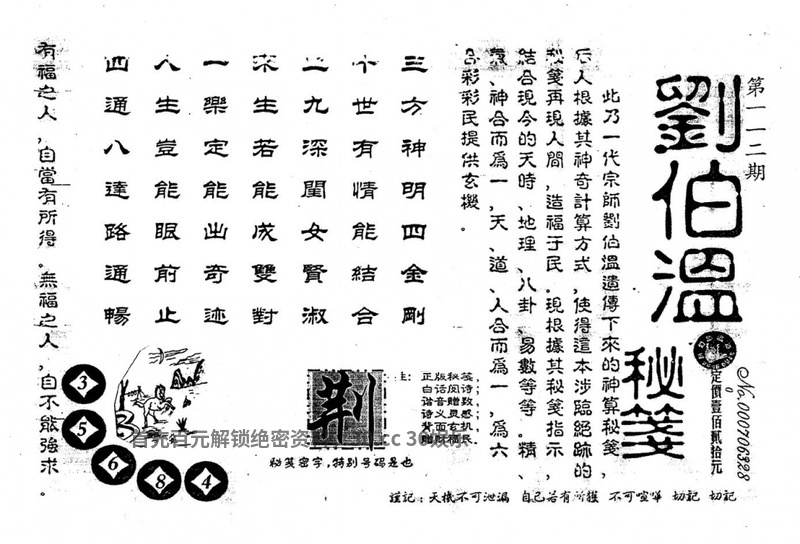 第一一二期
劉伯溫
秘箋
No.000706328
定價壹佰貳拾元
此乃一代宗師劉伯溫遺傳下來的神算秘箋,
后人根據其神奇計算方式,使得這本涉臨絕跡的
秘箋再現人間,造福于民。現根據其秘箋指示,
結合現今的天時、地理、八卦、易數等等。精、
、神合而爲一,天、道、人合而爲一,爲六
合彩彩民提供玄機。
三方神明四金剛
十世有情能結合
二九深閨女賢淑
來生若能成雙對
一樂定能出奇迹
人生豈能眼前止
四通八達路通暢
有福之人,自當有所得。無福之人,自不能強求。
3
5
6
8
4
荆
主:
正版秘箋
白话阅诗
谐音赠数
诗义灵感
背面玄机
秘笺密字,特别号码是也
謹記:天機不可泄漏 自己若有所獲 不可喧嘩 切記 切記